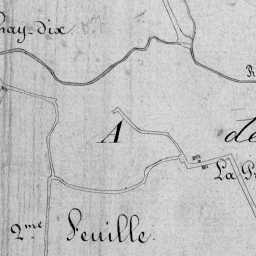 nay-dix
R
A de
La P
2me Feuille.